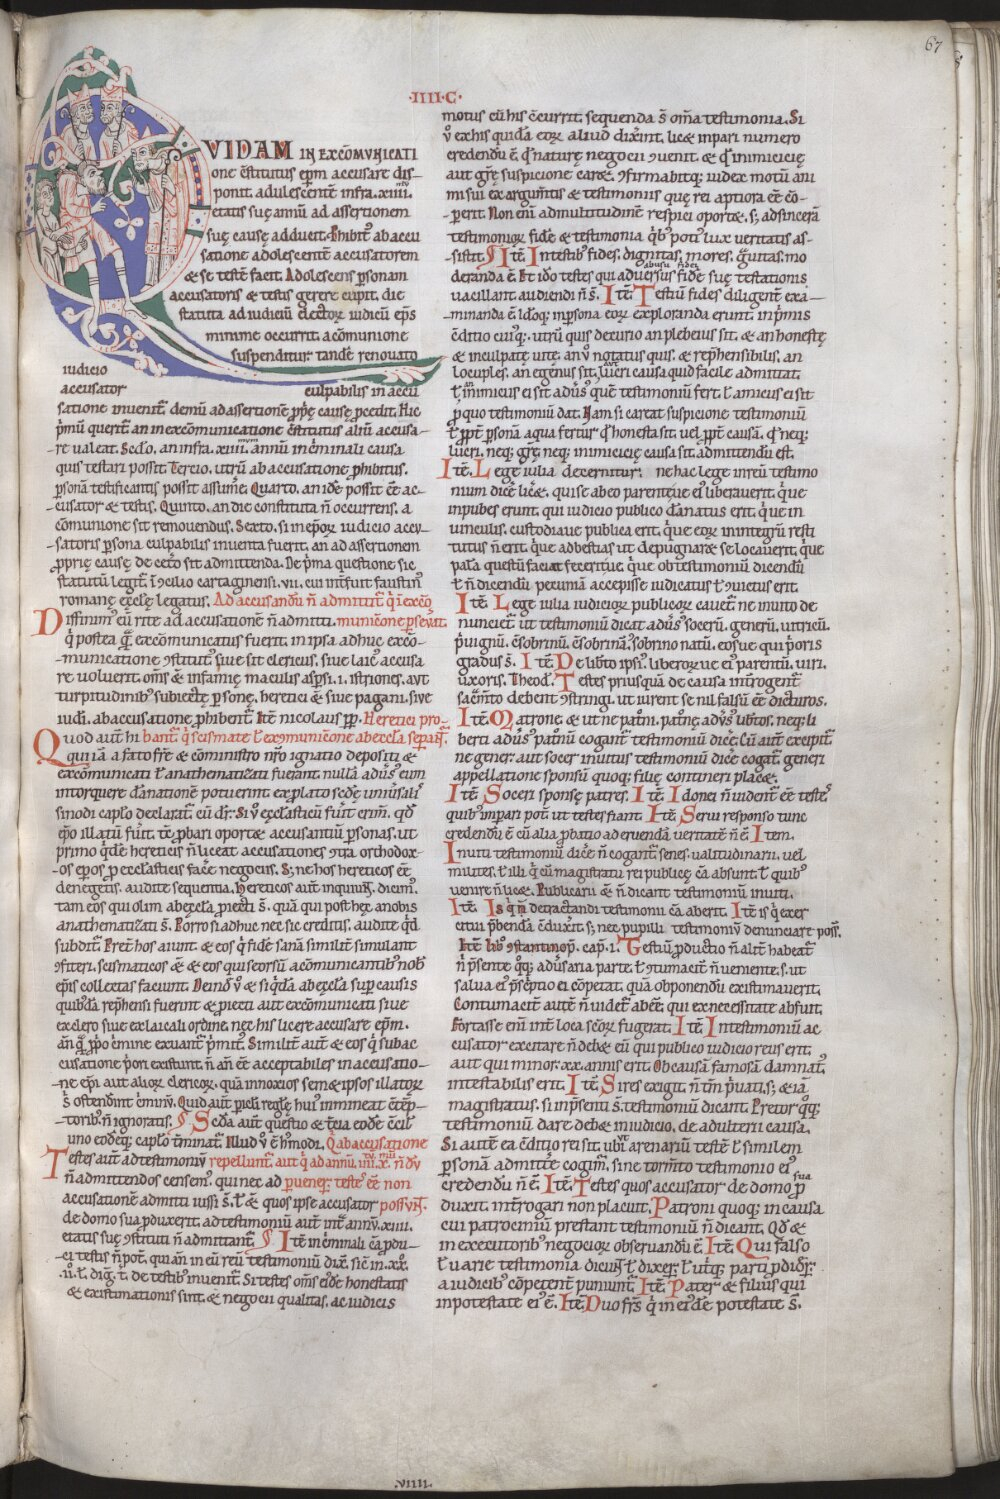 67
·IIII·C·
QVIDAM IN EXCÕMVNICATI
one c̄stitutus ep̄m accusare dis-
ponit. adulescentē infra .xiiii.
etatis suę annū ad assertionem
suę causę adduxit. Phibit᷒ ab accu
satione adolescentē accusatorem
& se testē facit. Adolescens p̱sonam
accusatoris & testis gerere cupit. die
statuta ad iudiciū electoꝝ iudicū ep̄s
minime occurrit. a cōmunione
suspenditur. tandē renouato
iudicio
accusator culpabilis in accu
satione inuenit᷑. demū ad assertionē p̱pę causę p̱cedit. Hic
p̄mū querit᷑ an in excōmunicatione c̄stitutus aliū accusa-
re ualeat. Scđo. an infra .xiiii. annū in c̄minali causa
quis testari possit. Tercio. utrū ab accusatione p̱hibitus.
p̱sonā testificantis possit assum̄e. Quarto. an idē possit c̄e ac-
cusator & testis. Quinto. an die constituta n̄ occurrens. a
cōmunione sit remouendus. Sexto. si in ep̄oꝝ iudicio accu-
satoris p̱sona culpabilis inuenta fuerit. an ad assertionem
p̱prię causę de cet̄o sit admittenda. De p̄ma questione sic
statutū legit᷑ ī 9cilio cartaginensi .vii. cui int̄fuit faustin᷒
romanę ęcclę legatus. Ad accusandū n̄ admittit᷑ q̄ ī excō
Diffinim᷒ eū rite ad accusationē n̄ admitti. municōne p̱seuat.
q̄ postea q̄ excōmunicatus fuerit. in ipsa adhuc excō-
municatione 9stitut᷒ siue sit clericus. siue laic᷒ accusa
re uoluerit. om̄s & infamię maculis asp̱si. i. istriones. aut
turpitudinib᷒ subiectę p̱sonę. heretici & siue pagani. siue
iudi. ab accusatione p̱hibent᷑. Itē nicolaus pp̱. Heretici pro-
Quod aut̄ hi bant᷑. q̄ scismate ł ex9municōne ab ęccła sepant᷑.
qui iā a sato fr̄e & cōministro nr̄o ignatio depositi &
excōmunicati ł anathematizati fuerant. nullā adūs᷒ eum
intorquere dānationē potuerint ex p̱lato sedęe uniūsalis
sinodi capl̄o declarat᷑. cū dr̄. Si u̾ ęcclasticū fuit crim̄. qđ
ep̄o illatū fuit. tē p̱bari oporte& accusantiū p̱sonas. ut
primo q̄dē hereticis n̄ liceat accusationes 9tra orthodox-
os ep̄os p̱ ecclasticis fac̄e negociis. S; ne hos hereticos c̄e
denegetis. audite sequentia. Hereticos aut̄ inquiunt. dicim᷒.
tam eos qui olim ab ęccła p̱iecti s̄. quā qui post hęc a nobis
anathematizati s̄. Porro si adhuc nec sic creditis. audite qđ
subdit᷑. Pret̄ hos aiunt. & eos q̄ fidē sanā similit᷑ simulant
9fiteri. scismaticos & & eos qui seorsū a cōmunicantib᷒ nob̄
ep̄is collectas faciunt. Deinđ u̾ & si q̄dā ab ęccła sup causis
quib᷒dā rep̄hensi fuerint & p̱iecti aut excōmunicati siue
ex clero siue ex laicali ordine. nec his licere accusare ep̄m.
an̄ q̄ p̱p̱o c̄mine exuant᷑ p̄mit᷑. Similit᷑ aut̄ & eos q̄ sub ac
cusatione p̱ori existunt. n̄ an̄ c̄e acceptabiles in accusatio-
ne ep̄i aut alioꝝ clericoꝝ. quā innoxios sem& ipsos illatoꝝ
s̄ ostendint c̄minū. Quid aut̄ p̱icli reglę hui᷒ immineat c̄tēp-
torib᷒ n̄ ignoratis. ¶ Scđa aut̄ questio & t̄cia eodē c̄cil̄
uno eodēq; capl̄o t̄minat᷑. Illud u̾ ē hm̄odi. Q̄ ab accusatione
Testes aut̄ ad testimoniū repellunt᷑. aut q̄ ad annū .xiiii. n̄ dū
n̄ admittendos censem᷒. qui nec ad p̱uener̄. testes c̄e non
accusationē admitti iussi s̄. ł & quos ipse accusator possunt.
de domo sua p̱duxerit. ad testimoniū aut̄ int̄ annū .xiiii.
etatis suę 9stituti n̄ admittant᷑. ¶ Itē in c̄minali cā p̱du-
ci testis n̄ pot᷑. qui an̄ in eū reū testimoniū dix̄. sic̄ in .xxii.
ii. ł. dig̊. t̄. de testib᷒ inuenit᷑. Si testes om̄s ei᷒dē honestatis
& existimationis sint. & negocii qualitas. ac iudicis
motus cū his c̄currit. sequenda s̄ om̄a testimonia. Si
u̾ ex his quidā eoꝝ aliud dix̄int. lic& inpari numero
credendū ē. q̄ naturę negocii 9uenit. & q̄ inimicicię
aut gr̄ę suspicione care&. 9firmabitq; iudex motū ani
mi sui ex argum̄tis & testimoniis quę rei aptiora c̄e cō-
p̱erit. Non eni ad multitudinē respici oporte&. s; ad sincerā
testimonioꝝ fidē & testimonia q̄b᷒ poti᷒ lux ueritatis as-
sistit. ¶ Itē. In testib᷒ fides. dignitas. mores. g̱uitas. mo
deranda ē. Et ido testes qui adversus fidē suę testationis
uacillant. audiendi n̄ s̄. Itē. Testiū fides diligent᷑ exa-
minanda ē. Idoq; in p̱sona eoꝝ exploranda erunt. inp̄mis
c̄ditio cui᷒q;. utrū quis decurio an plebeius sit. & an honestę
& inculpatę uitę. an u̾ notatus quis. & rep̄hensibilis. an
locuples. an egenus sit. ł lucri causa quid facile admittat.
ł inimicus ei sit adūs᷒ quē testimoniū fert. ł amicus ei sit
p̱ quo testimoniū dat. Nam si careat suspicione testimoniū
ł p̱pt᷑ p̱sonā a qua fertur q̄ honesta sit. uel p̱pt᷑ causā. q̄ neq;
lucri. neq; gr̄ę neq; inimicicię causa sit. admittendū est.
Itē. Lege iulia decernitur. ne hac lege in reū testimo
nium dic̄e lice&. qui se ab eo parenteue ei᷒ liberauerit. q̄ue
inpubes erunt. qui iudicio publico dānatus erit. q̄ue in
uinculis. custodiaue publica erit. q̄ue eoꝝ in integrū resti
tutus n̄ erit. q̄ue ad bestias ut depugnar& se locauerit. q̄ue
pala questū faciat feceritue. q̄ue ob testimoniū dicendū
ł n̄ dicendū pecuniā accepisse iudicatus ł 9uictus erit.
Itē. Lege iulia iudicioꝝ publicoꝝ cauet᷑ ne inuito de
nunciet᷑ ut testimoniū dicat adūs᷒ socerū. generū. uitricū.
p̄uignū. c̄sobrinū. c̄sobrinā. sobrino natū. eosue qui p̄oris
gradus s̄. Itē. De lib̄to ipsi᷒. liberoꝝue ei᷒ parentū. uiri.
uxoris. Theod. Testes priusquā de causa int̄rogent᷑
sacm̄to debent 9stringi. ut iurent se nil falsū c̄e dicturos.
Itē. Matronę & ut ne pat̄ni. pat̄nę adūs᷒ lib̄tos. neq; li
berti adūs᷒ pat̄nū cogant᷑ testimoniū dic̄e. Cū aut̄ excipit᷑
ne gener. aut socer inuitus testimoniū dic̄e cogat᷑. generi
appellatione sponsū quoq; filię contineri place&.
Itē. Soceri sponsę patres. Itē. Idonei n̄ uident᷑ c̄e testes
quib᷒ imperari pot᷑ ut testes fiant. Itē. Serui responso tunc
credendū ē cū alia p̱batio ad eruendā ueritatē n̄ ē. Item.
Inuiti testimoniū dic̄e n̄ cogant᷑ senes. ualitudinarii. uel
milites. ł illi q̄ cū magistratu rei publicę cā absunt. ł quib᷒
uenire n̄ lice&. Publicani & n̄ dicant testimoniū inuiti.
Itē. Is q̄ n̄ detractandi testimonii cā aberit. Itē is q̄ exer
citui p̱bendā c̄duxit. s; nec pupilli testimoniū denunciare poss̄.
Itē lib᷒ 9stantinop̱. cap̱. i. Testiū p̱ductio n̄ alit᷑ habeat᷑
n̄ p̱sente q̊q; adūsaria parte. ł 9tumacit᷑ n̄ ueniente. s. ut
salua ei p̄sc̄ptio ei cōpetat. quā obponendū existimauerit.
Contumacit᷑ autē n̄ uidet᷑ abēe. qui ex necessitate absuit.
Fortasse eni int̄ loca sc̄oꝝ fugerat. Itē. In testimoniū ac
cusator excitare n̄ debe& eū qui publico iudicio reus erit.
aut qui minor .xx. annis erit. Ob causā famosā damnat᷒
intestabilis erit. Itē. Si res exigit. n̄ tm̄ p̄uati. s; & iā
magistratus. si in p̄senti s̄. testimoniū dicant. Pretor q̊q;
testimoniū dare deb& in iudicio. de adulterii causa.
Si autē ea c̄ditio rei sit. ubi arenariū testē ł similem
p̱sonā admitt̄e cogim᷑. sine torm̄to testimonio ei᷒
credendū n̄ ē. Itē. Testes quos accusator de domo p̱
duxit. int̄rogari non placuit. Patroni quoq; in causa
cui patrocinium prestant testimoniū n̄ dicant. Qđ &
in executorib᷒ negocioꝝ obseruandū ē. Itē. Qui falso
ł uarie testimonia dicunt ł dixer̄. ł ut̄q; parti p̱dider̄.
a iudicib᷒ cōpetent᷑ puniunt᷑. Itē. Pater & filius qui
in potestate ei᷒ ē. Itē. Duo fr̄s q̄ in ei᷒dē potestate s̄.
·VIIII·